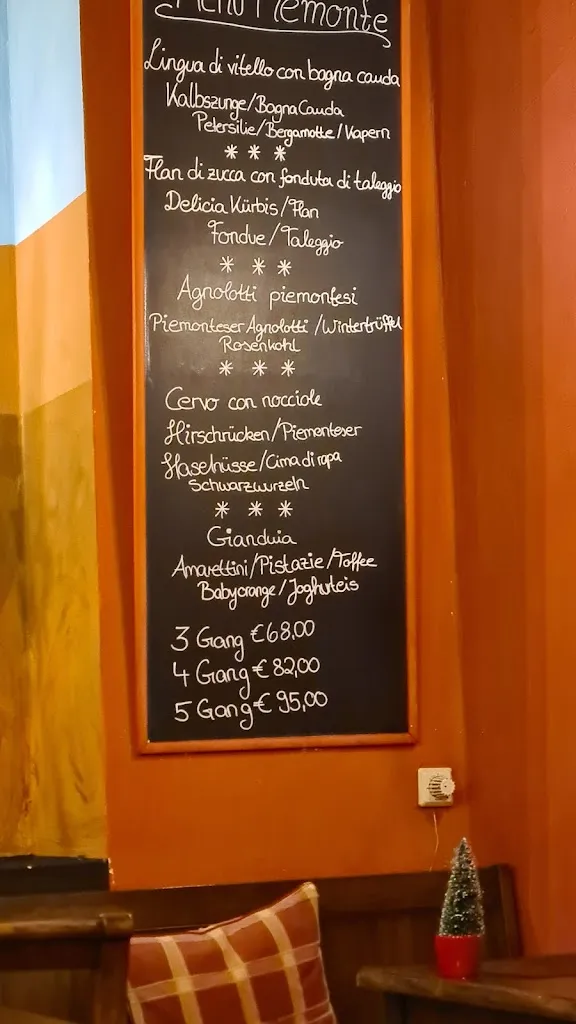 Menu Piemonte
Lingua di vitello con bagna cauda
Kalbszunge/Bagna Cauda
Petersilie/Bergamotte/Kapern
* * *
Flan di zucca con fonduta di taleggio
Delicia Kürbis/Flan
Fondue/Taleggio
* * *
Agnolotti piemontesi
Piemonteser Agnolotti/Wintertrüffel
Rosenkohl
* * *
Cervo con nocciole
Hirschrücken/Piemonteser
Haselnüsse/Cima di rapa
Schwarzwurzeln
* * *
Gianduia
Amarettini/Pistazie/Toffee
Babyorange/Joghurteis
3 Gang €68,00
4 Gang € 82,00
5 Gang € 95,00